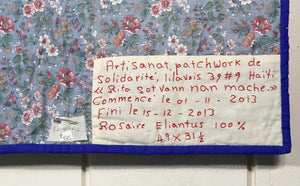 Artisanat, patchwork de
Solidarité, lilavois 39#9 Haiti
«Rito Sot vann nan mache.»
Commencé le 01-11-2013
Fini le 15-12-2013
Rosaire Eliantus 100%
49 x 31½